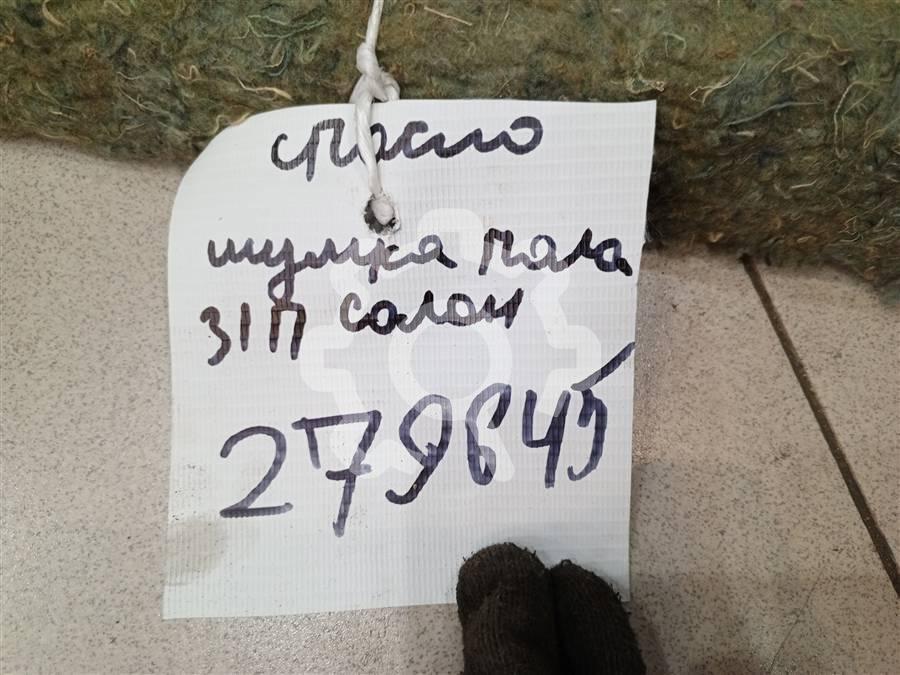 спасио
шумка пола
З/П салон
279645